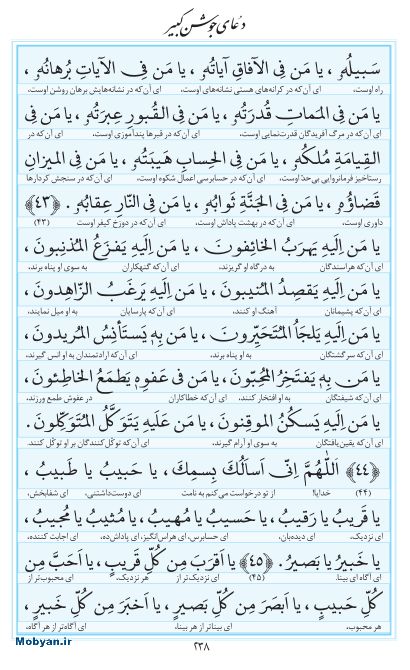 دعای جوشن کبیر
سَبيلُهُ ، يا مَن فِى الآفاقِ آياتُهُ ، يا مَن فِى الآياتِ بُرهانُهُ ،
راه اوست، ای آن‌که در کرانه‌های هستی نشانه‌های اوست، ای آن‌که در نشانه‌هایش برهان روشن اوست،
يا مَن فِى المَماتِ قُدرَتُهُ ، يا مَن فِى القُبورِ عِبرَتُهُ ، يا مَن فِى
ای آن‌که در مرگ آفریدگان قدرت‌نمایی اوست، ای آن‌که در قبرها پندآموزی اوست، ای آن‌که در
القِيامَةِ مُلكُهُ ، يا مَن فِى الحِسابِ هَيبَتُهُ ، يا مَن فِى الميزانِ
رستاخیز فرمانروایی بی‌حدّ اوست، ای آن‌که در حسابرسی اعمال شکوه اوست، ای آن‌که در سنجش کردارها
قَضاؤُهُ ، يا مَن فِى الجَنَّةِ ثَوابُهُ ، يا مَن فِى النّارِ عِقابُهُ . ﴿٤٣﴾
داوری اوست، ای آن‌که در بهشت پاداش اوست، ای آن‌که در دوزخ کیفر اوست (۴۳)
يا مَن اِلَيهِ يَهرَبُ الخائِفونَ ، يا مَن اِلَيهِ يَفزَعُ المُذنِبونَ ،
ای آن‌که هراسندگان به درگاه او گریزند، ای آن‌که گنهکاران به سوی او پناه برند،
يا مَن اِلَيهِ يَقصِدُ المُنيبونَ ، يا مَن اِلَيهِ يَرغَبُ الزّاهِدونَ ،
ای آن‌که پشیمانان آهنگ او کنند، ای آن‌که پارسایان به او میل نمایند،
يا مَن اِلَيهِ يَلجَأُ المُتَحَيِّرونَ ، يا مَن بِهِ يَستَأنِسُ المُريدونَ ،
ای آن‌که سرگشتگان به او پناه برند، ای آن‌که ارادتمندان به او انس گیرند،
يا مَن بِهِ يَفتَخِرُ المُحِبّونَ ، يا مَن فى عَفوِهِ يَطمَعُ الخاطِئونَ ،
ای آن‌که شیفتگان به او افتخار کنند، ای آن‌که خطاکاران در عفوش طمع ورزند،
يا مَن اِلَيهِ يَسكُنُ الموقِنونَ ، يا مَن عَلَيهِ يَتَوَكَّلُ المُتَوَكِّلونَ .
ای آن‌که یقین‌یافتگان به سوی او آرام گیرند، ای آن‌که توکّل کنندگان بر او توکّل کنند
﴿٤٤﴾ اَللّهُمَّ اِنّى اَسأَلُكَ بِسمِكَ ، يا حَبيبُ يا طَبيبُ ،
(۴۴) خدایا! از تو درخواست می‌کنم به نامت ای دوست‌داشتنی، ای شفابخش،
يا قَريبُ يا رَقيبُ ، يا حَسيبُ يا مُهيبُ ، يا مُثيبُ يا مُجيبُ ،
ای نزدیک، ای دیده‌بان، ای حسابرس، ای هراس‌انگیز، ای پاداش‌ده، ای اجابت کننده،
يا خَبيرُ يا بَصيرُ . ﴿٤٥﴾ يا اَقرَبَ مِن كُلِّ قَريبٍ ، يا اَحَبَّ مِن
ای آگاه ای بینا. (۴۵) ای نزدیک‌تر از هر نزدیک، ای محبوب‌تر از
كُلِّ حَبيبٍ ، يا اَبصَرَ مِن كُلِّ بَصيرٍ ، يا اَخبَرَ مِن كُلِّ خَبيرٍ ،
هر محبوب، ای بیناتر از هر بینا، ای آگاه‌تر از هر آگاه،
۲۳۸
Mobyan.ir